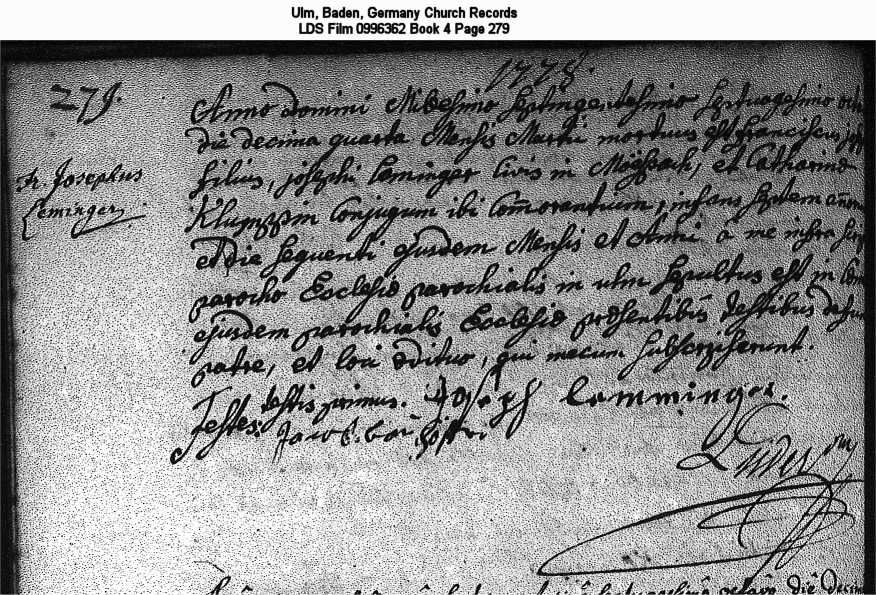 Ulm, Baden, Germany Church Records
LDS Film 0996362 Book 4 Page 279
1778.
279.
Anno Domini Milesimo septingentesimo septuagesimo octa
die decima quarta Mensis Martii mortuus est franciscus jose
Fr. Josephus
filius, josephi Leminger civis in Mösbach, et Catharinæ
Leminger
Klumppin Conjugum ibi Com̄orantium, infans septem an̄oru
et die sequenti ejusdem Mensis et Anni a me infra scrip
parocho Ecclesiæ parochialis in ulm sepultus est in Cœm
ejusdem parochialis Ecclesiæ præsentibus testibus defun
patre, et loci ædituo, qui mecum subscripserunt.
testis primus. Joseph Lemminger.
Testes: Jacob